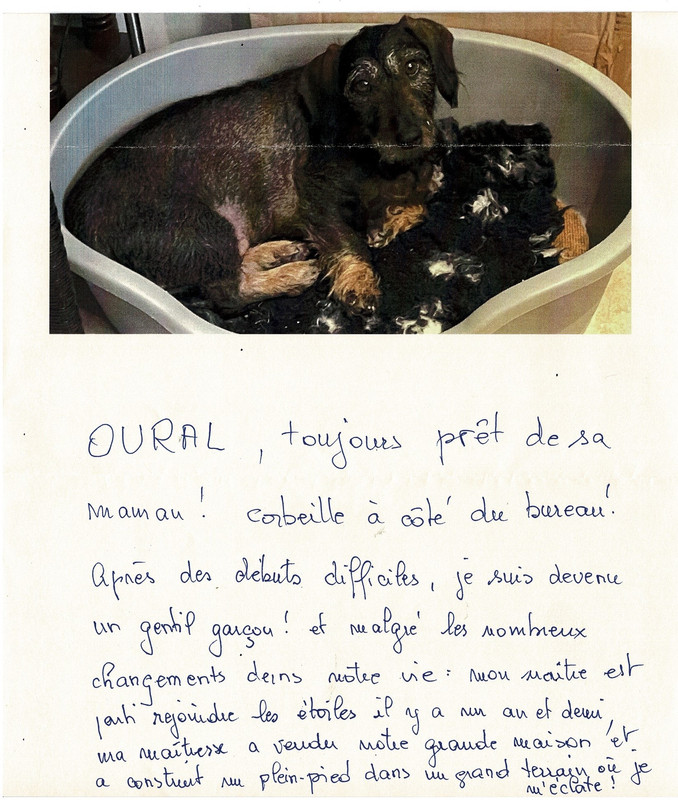 OURAL, toujours prêt de sa
maman ! corbeille à côté du bureau !
Après des débuts difficiles, je suis devenu
un gentil garçon ! et malgré les nombreux
changements dans notre vie : mon maître est
parti rejoindre les étoiles il y a un an et demi,
ma maîtresse a vendu notre grande maison et
a construit un plein-pied dans un grand terrain où je
m'éclate !